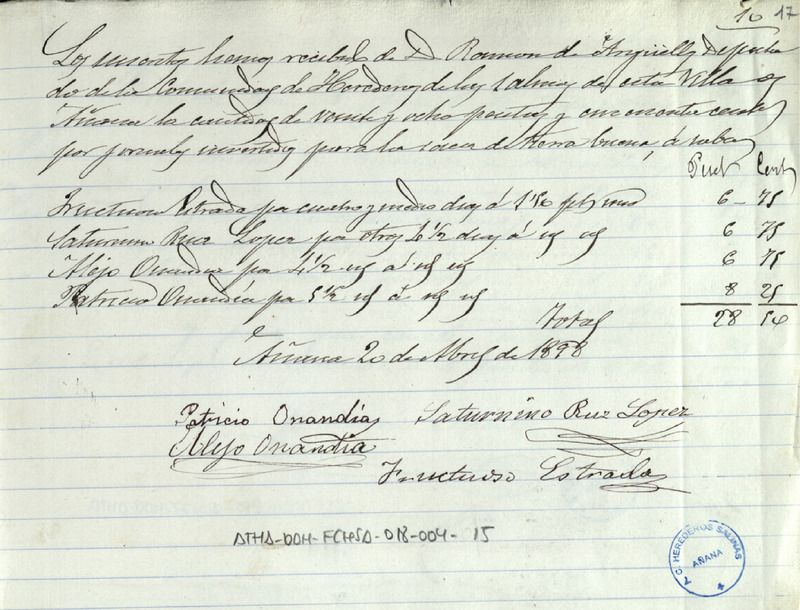 10 17
Los suscritos hemos recibido de D. Ramon de Argüelles Deputa
do de la Comunidad de Herederos de las salinas de esta Villa de
Añana la cantidad de veinte y ocho pesetas y cincuenta cents
por jornales invertidos para la saca de tierra buena, á saber
Peset Cent
Fructuoso Estrada por cuatro y medio dias á 1'50 pts uno 6 - 75
Saturnino Ruz Lopez por otros 4 1/2 dias á id id 6 75
Alejo Onandia por 4 1/2 id á id id 6 75
Patricio Onandia por 5 1/2 id á id id 8 25
Total 28 50
Añana 20 de Abril de 1898
Patricio Onandia Saturnino Ruz Lopez
Alejo Onandia
Fructuoso Estrada
ATHA-DAH-FCHSA-018-004-15
C. HEREDEROS SALINAS
AÑANA